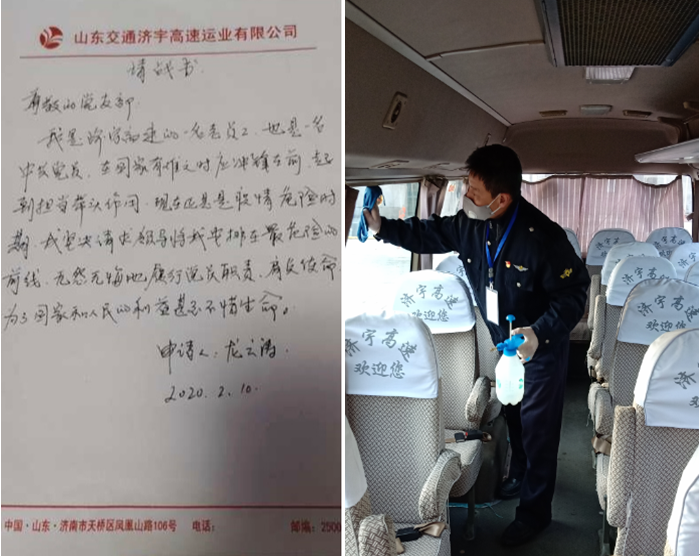 山东交通济宇高速运业有限公司
请战书
尊敬的党支部
我是济宇高速的一名老员工、也是一名
中共党员，在国家有难之时应冲锋在前，起
到担当带头作用，现在正是是疫情危险时
期，我坚决请求领导将我安排在最危险的
前线，无怨无悔地履行党员职责，肩负使命
为了国家和人民的利益甚至不惜生命。
申请人：龙云涛
2020.2.10.
中国·山东·济南市天桥区凤凰山路106号 电话： 邮编：2500
济宇高速
欢迎您
济宇高速
欢迎您
济宇高速
欢迎您
济宇高速
欢迎您